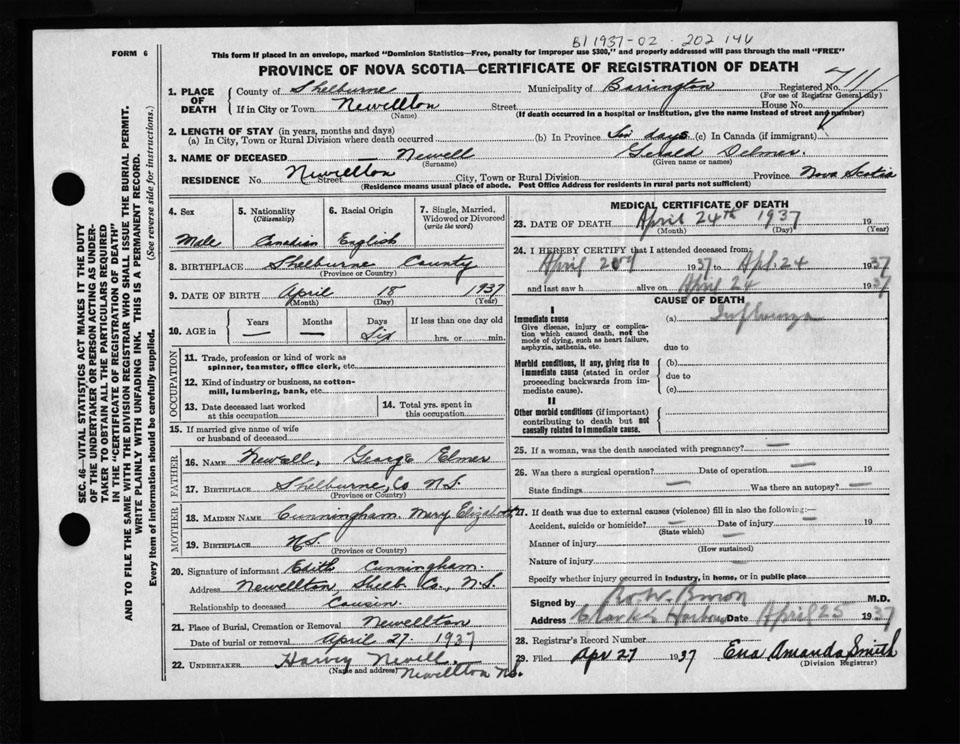 B1 1937-02-202144
FORM 6
This form if placed in an envelope, marked "Dominion Statistics—Free, penalty for improper use $300," and properly addressed will pass through the mail "FREE"
PROVINCE OF NOVA SCOTIA—CERTIFICATE OF REGISTRATION OF DEATH
1. PLACE OF DEATH County of Shelburne Municipality of Barrington Registered No. 711
(For use of Registrar General only)
If in City or Town Newellton Street House No.
(Name) (If death occurred in a hospital or institution, give the name instead of street and number)
2. LENGTH OF STAY (in years, months and days)
(a) In City, Town or Rural Division where death occurred (b) In Province Six days (c) In Canada (if immigrant)
3. NAME OF DECEASED — Newell Gerald Delmer.
(Surname) (Given name or names)
RESIDENCE No. Newellton Street City, Town or Rural Division Province Nova Scotia
(Residence means usual place of abode. Post Office Address for residents in rural parts not sufficient)
4. Sex 5. Nationality 6. Racial Origin 7. Single, Married, Widowed or Divorced
(Citizenship) (write the word)
Male Canadian English
8. BIRTHPLACE Shelburne County
(Province or Country)
9. DATE OF BIRTH April 18 1937
(Month) (Day) (Year)
10. AGE in Years Months Days If less than one day old
— — Six hrs. or min.
OCCUPATION
11. Trade, profession or kind of work as spinner, teamster, office clerk, etc.
12. Kind of industry or business, as cotton-mill, lumbering, bank, etc.
13. Date deceased last worked at this occupation
14. Total yrs. spent in this occupation
15. If married give name of wife or husband of deceased
FATHER
16. NAME Newell, George Elmer
17. BIRTHPLACE Shelburne, Co N.S.
(Province or Country)
MOTHER
18. MAIDEN NAME Cunningham. Mary Elizabeth
19. BIRTHPLACE N.S.
(Province or Country)
20. Signature of informant Edith Cunningham.
Address Newellton, Shelb. Co., N.S.
Relationship to deceased Cousin
21. Place of Burial, Cremation or Removal Newellton
Date of burial or removal April 27 1937
22. UNDERTAKER Harvey Newell,
(Name and address) Newellton N.S.
MEDICAL CERTIFICATE OF DEATH
23. DATE OF DEATH April 24th 1937 19
(Month) (Day) (Year)
24. I HEREBY CERTIFY that I attended deceased from:
April 1937 to Apl. 24 1937
and last saw h alive on April 24 1937
CAUSE OF DEATH
I
Immediate cause (a) Influenza
Give disease, injury or complication which caused death, not the mode of dying, such as heart failure, asphyxia, asthenia, etc.
due to
Morbid conditions, if any, giving rise to immediate cause (stated in order proceeding backwards from immediate cause).
(b)
due to
(c)
II
Other morbid conditions (if important) contributing to death but not causally related to immediate cause.
25. If a woman, was the death associated with pregnancy? —
26. Was there a surgical operation? — Date of operation — 19
State findings Was there an autopsy? —
27. If death was due to external causes (violence) fill in also the following:—
Accident, suicide or homicide? — Date of injury — 19
(State which)
Manner of injury —
(How sustained)
Nature of injury —
Specify whether injury occurred in industry, in home, or in public place
Signed by M.D.
Address Clark's Harbour Date April 25 1937
28. Registrar's Record Number
29. Filed Apr 27 1937 Ena Amanda Smith
(Division Registrar)
SEC. 46—VITAL STATISTICS ACT MAKES IT THE DUTY
OF THE UNDERTAKER OR PERSON ACTING AS UNDER-
TAKER TO OBTAIN ALL THE PARTICULARS REQUIRED
IN THE "CERTIFICATE OF REGISTRATION OF DEATH"
AND TO FILE THE SAME WITH THE DIVISION REGISTRAR WHO SHALL ISSUE THE BURIAL PERMIT.
WRITE PLAINLY WITH UNFADING INK. THIS IS A PERMANENT RECORD.
Every item of information should be carefully supplied. (See reverse side for instructions.)